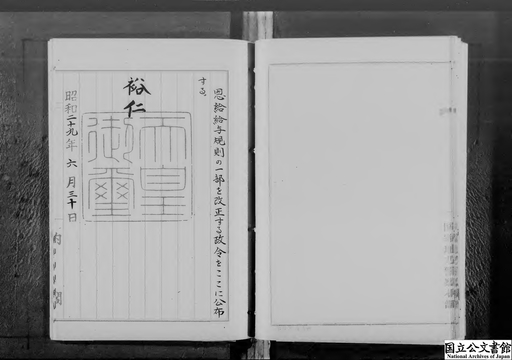 恩給給与規則の一部を改正する政令をここに公布
する。
裕仁
天皇御璽
昭和二十九年六月三十日
国立公文書館
National Archives of Japan